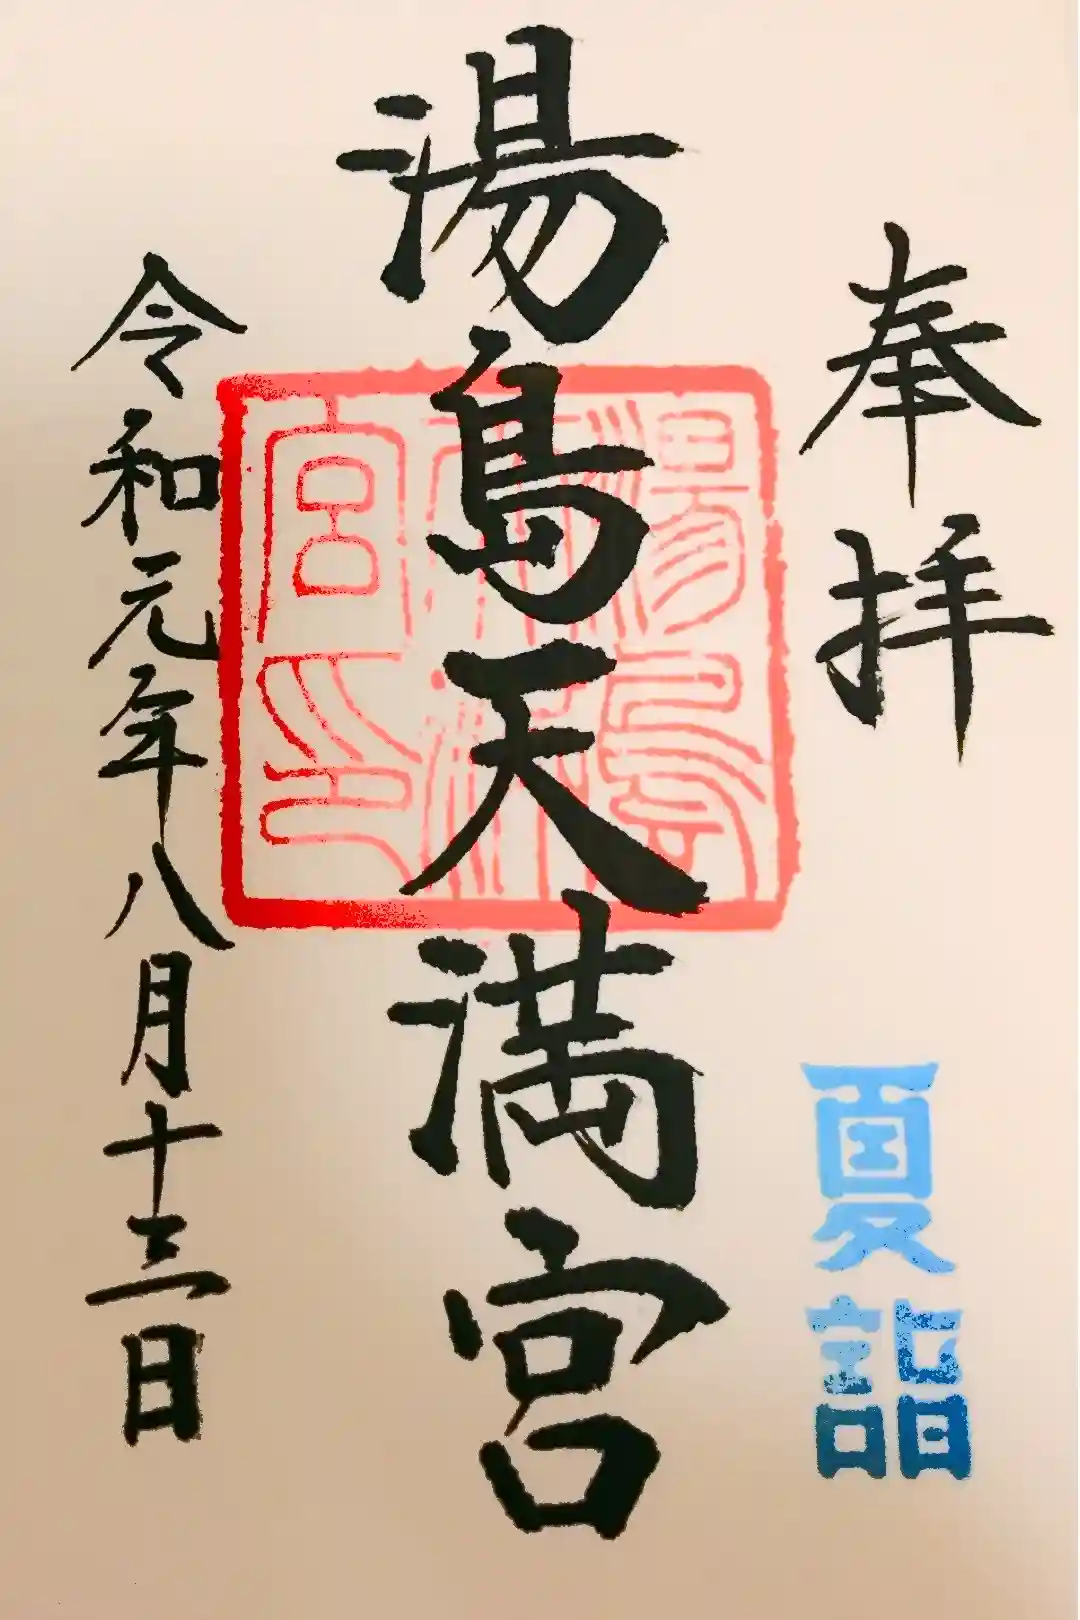 奉拝
夏詣
湯島天満宮
湯島天神宮印
令和元年八月十三日